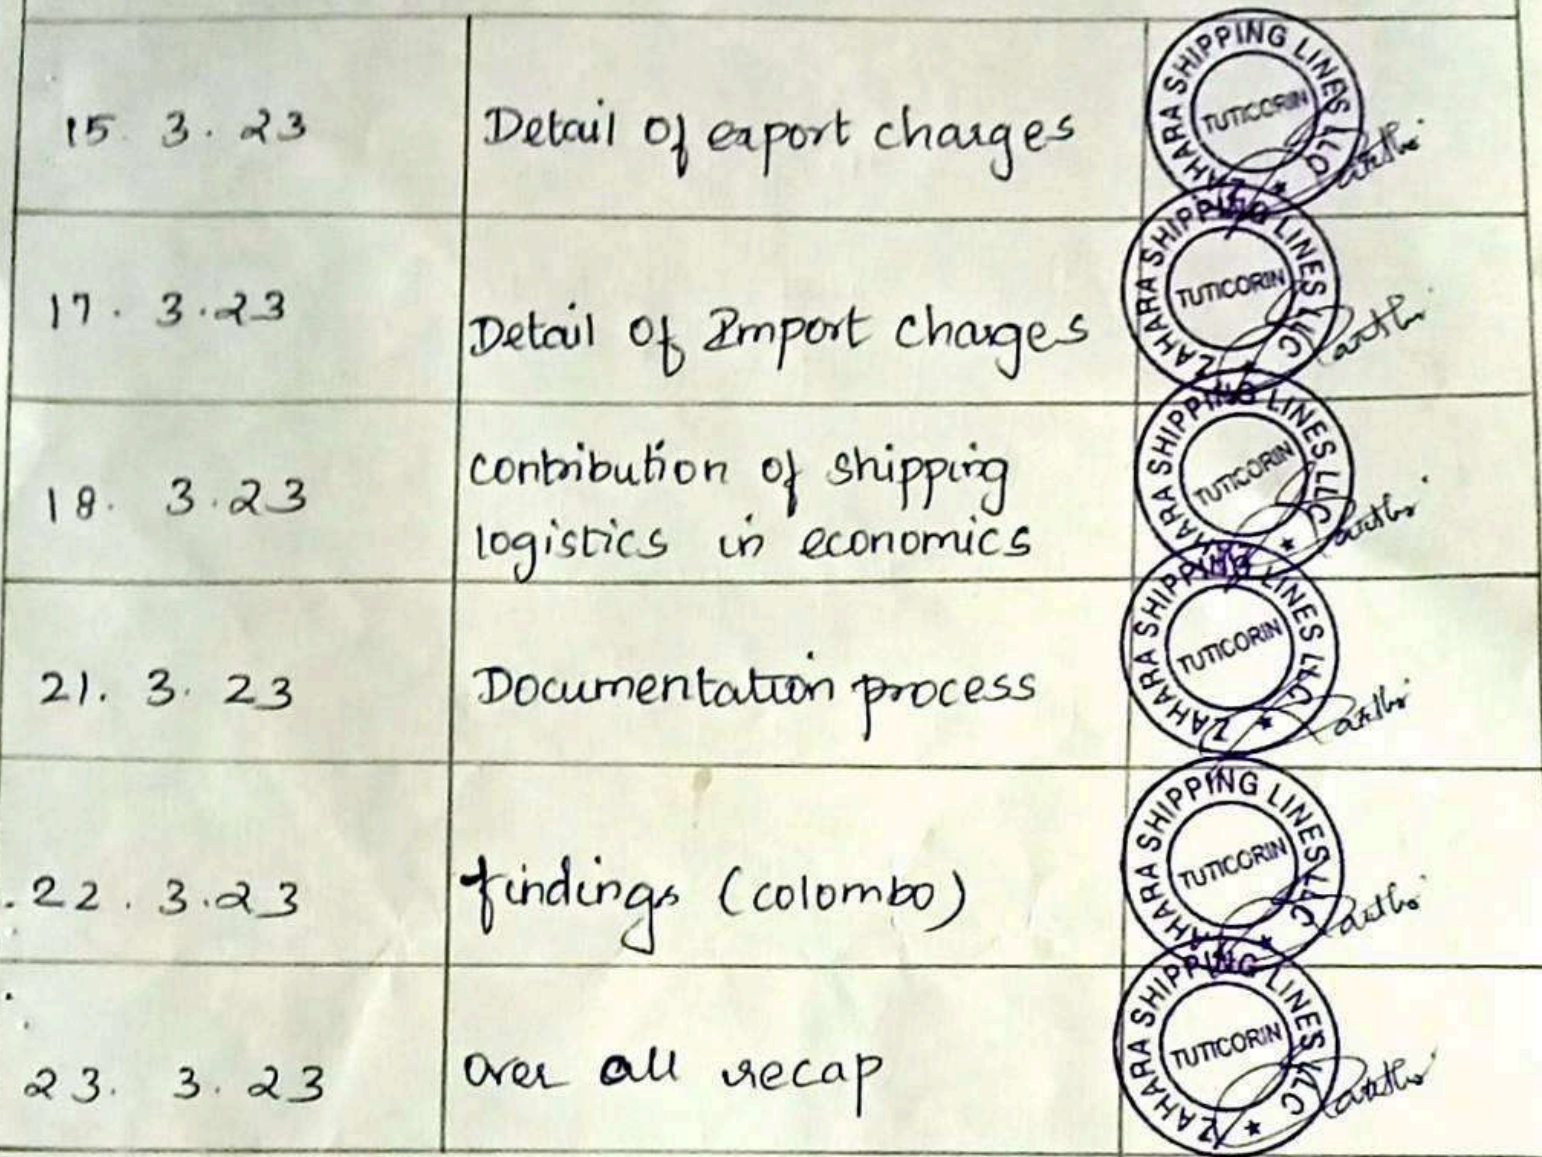 15. 3. 23
Detail of export charges
ZAHARA SHIPPING LINES LLC
TUTICORIN
17. 3.23
Detail of Import charges
ZAHARA SHIPPING LINES LLC
TUTICORIN
18. 3.23
contribution of shipping
logistics in economics
ZAHARA SHIPPING LINES LLC
TUTICORIN
21. 3. 23
Documentation process
ZAHARA SHIPPING LINES LLC
TUTICORIN
22. 3.23
findings (colombo)
ZAHARA SHIPPING LINES LLC
TUTICORIN
23. 3. 23
over all recap
ZAHARA SHIPPING LINES LLC
TUTICORIN